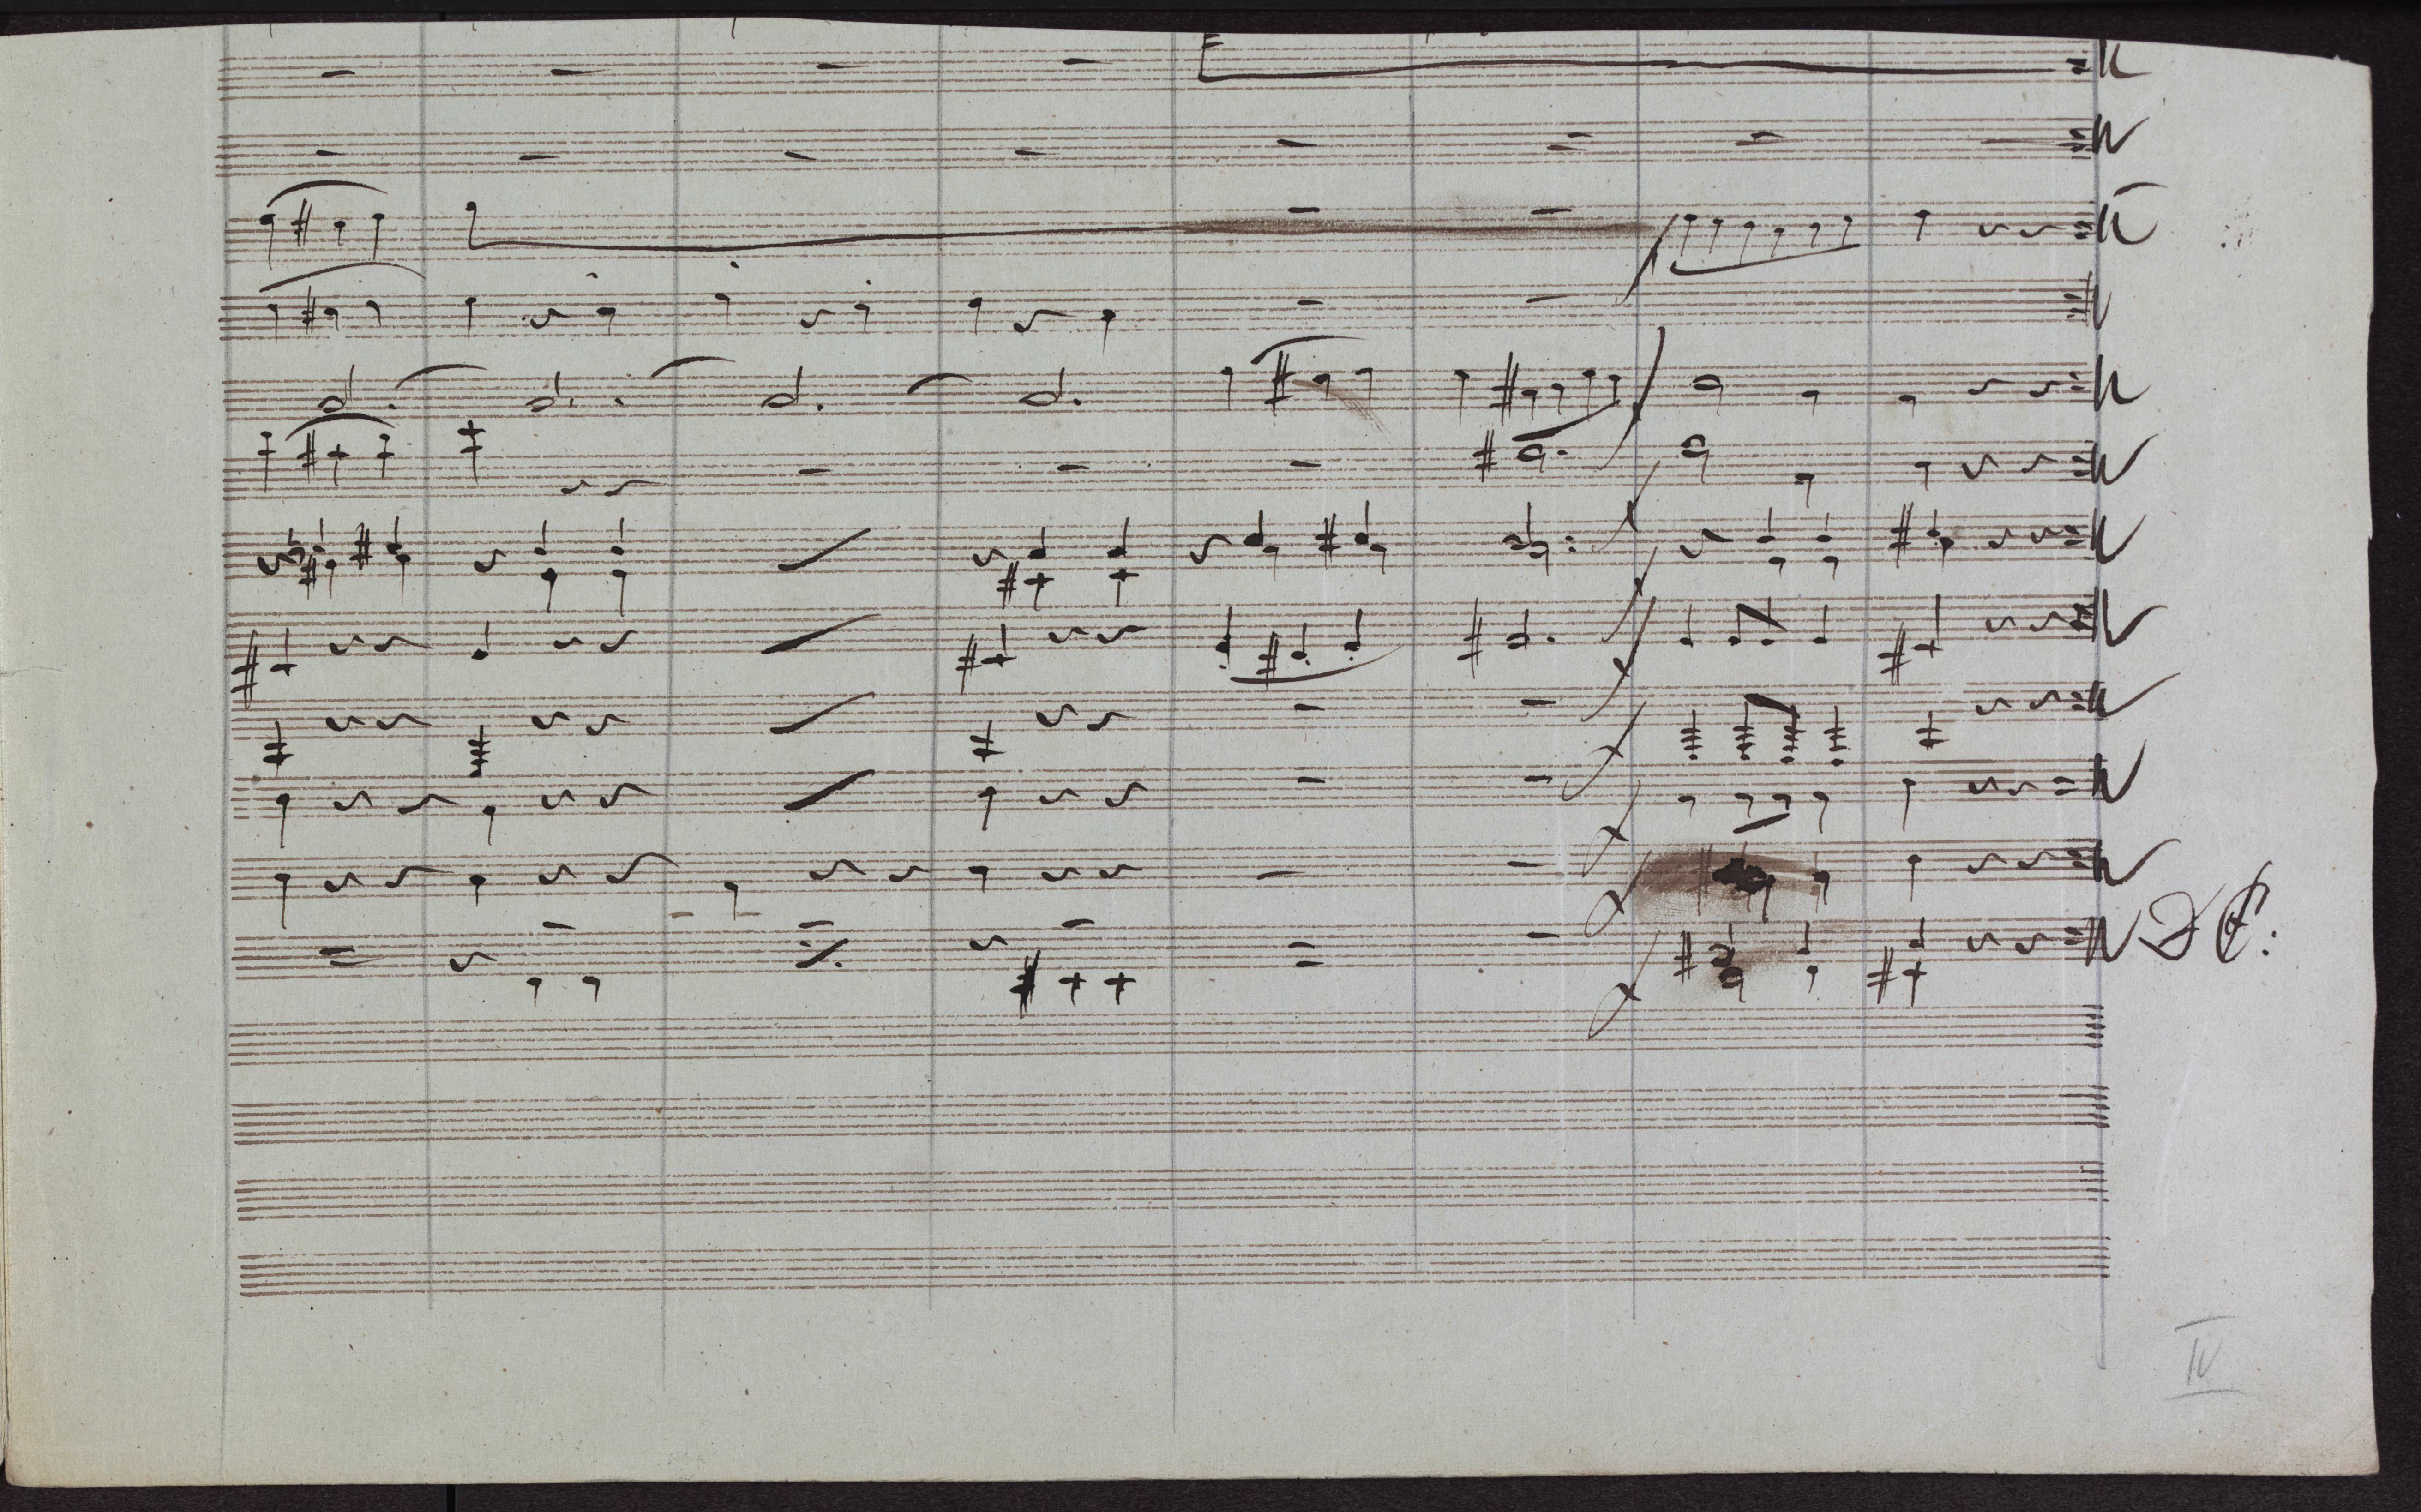 D C.
IV